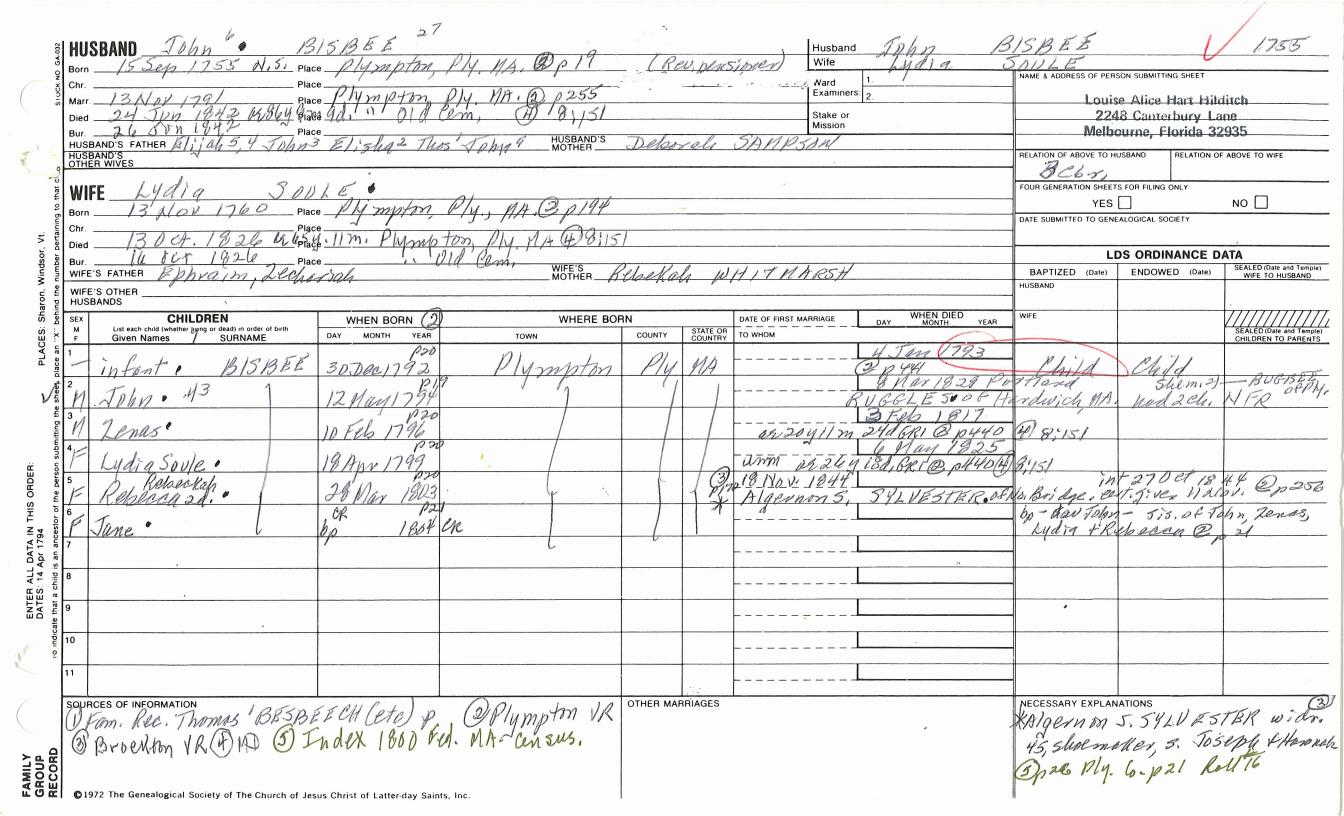 HUSBAND John 6 BISBEE 27
Born 15 Sep 1755 N.S. Place Plympton, Ply. MA. ② p19 (Rev. pensioner)
Chr. Place
Marr 13 Nov 1791 Place Plympton, Ply. MA. ② p255
Died 24 Jan 1842 Place " Old Cem. ④ 8:151
Bur. 26 Jan 1842 Place
HUSBAND'S FATHER Elijah 5,4 John 3 Elisha 2 Thos' John HUSBAND'S MOTHER Deborah SAMPSON
HUSBAND'S OTHER WIVES
WIFE Lydia SOULE
Born 13 Nov 1760 Place Plympton, Ply., MA. ③ p194
Chr. Place
Died 13 Oct. 1826 Place 11m. Plympton, Ply. MA ④ 8:151
Bur. 16 Oct 1826 Place " Old Cem.
WIFE'S FATHER Ephraim, Zecheriah WIFE'S MOTHER Rebekah WHITMARSH
WIFE'S OTHER HUSBANDS
Husband John BISBEE 1755
Wife Lydia SOULE
Ward Examiners 1. 2.
Stake or Mission
NAME & ADDRESS OF PERSON SUBMITTING SHEET
Louise Alice Hart Hilditch
2248 Canterbury Lane
Melbourne, Florida 32935
RELATION OF ABOVE TO HUSBAND RELATION OF ABOVE TO WIFE
FOUR GENERATION SHEETS FOR FILING ONLY
YES NO
DATE SUBMITTED TO GENEALOGICAL SOCIETY
LDS ORDINANCE DATA
BAPTIZED (Date) ENDOWED (Date) SEALED (Date and Temple) WIFE TO HUSBAND
HUSBAND
WIFE
SEALED (Date and Temple) CHILDREN TO PARENTS
SEX M F CHILDREN WHEN BORN ② WHERE BORN DATE OF FIRST MARRIAGE WHEN DIED
List each child (whether living or dead) in order of birth
Given Names SURNAME DAY MONTH YEAR TOWN COUNTY STATE OR COUNTRY TO WHOM DAY MONTH YEAR
1 – infant BISBEE 30 Dec 1792 p20 Plympton Ply MA 4 Jan 1793 ② p441 Child Child
2 M John #3 12 May 1794 p19 8 Mar 1828 Portland
RUGGLES of Hardwich, MA. had 2 ch. NFR
3 M Zenas 10 Feb 1796 p20 3 Feb 1817
20y 11m 24d GR1 ② p440 ④ 8:151
4 F Lydia Soule 18 Apr 1799 p20 6 May 1825
unm 26y 18d, GR1 ② p440 ④ 8:151
5 F Rebeckah
Rebecca 2d. 28 Mar 1803 p20 ③ 18 Nov. 1844 int 27 Oct 1844 ② p256
* Algernon S. SYLVESTER of No. Bridge. cert. given 11 Nov.
6 F Jane CR bp 1804 CR p21 bp – dau John – sis. of John, Zenas,
Lydia & Rebecca ② p 21
7
8
9
10
11
SOURCES OF INFORMATION
① Fam. Rec. Thomas' BESBEECH (etc) p ② Plympton VR
③ Brockton VR ④ MD ⑤ Index 1800 Fed. MA-Census.
OTHER MARRIAGES
NECESSARY EXPLANATIONS ③
*Algernon S. SYLVESTER widr.
45, shoemaker, s. Joseph & Hannah
⑤ p26 Ply. Co. p21 Roll 16
©1972 The Genealogical Society of The Church of Jesus Christ of Latter-day Saints, Inc.
FAMILY GROUP RECORD
ENTER ALL DATA IN THIS ORDER:
DATES: 14 Apr 1794
PLACES: Sharon, Windsor, Vt.